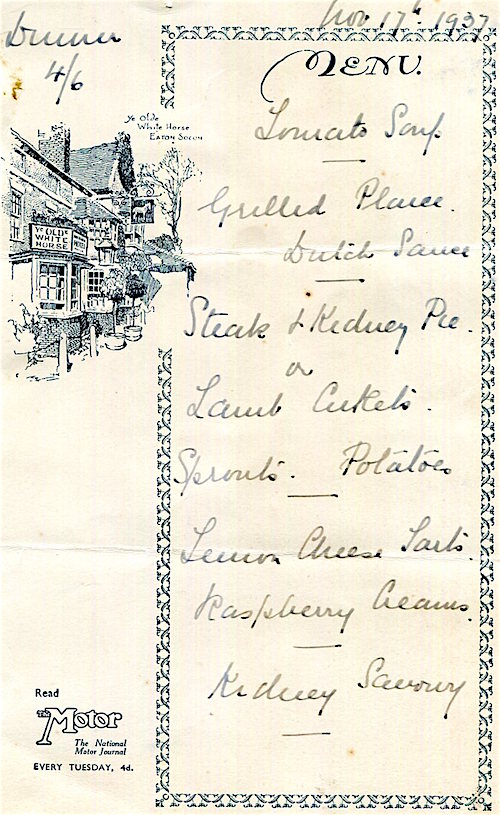 Nov 17th 1937
Dinner
4/6
MENU.
Ye Olde
White Horse
Eaton Socon
YE OLDE
WHITE
HORSE
Tomato Soup
Grilled Plaice.
Dutch Sauce
Steak & Kidney Pie.
or
Lamb Cutlets.
Sprouts. Potatoes
Lemon Cheese Tarts.
Raspberry Creams.
Kidney Savoury
Read
The Motor
The National
Motor Journal
EVERY TUESDAY, 4d.